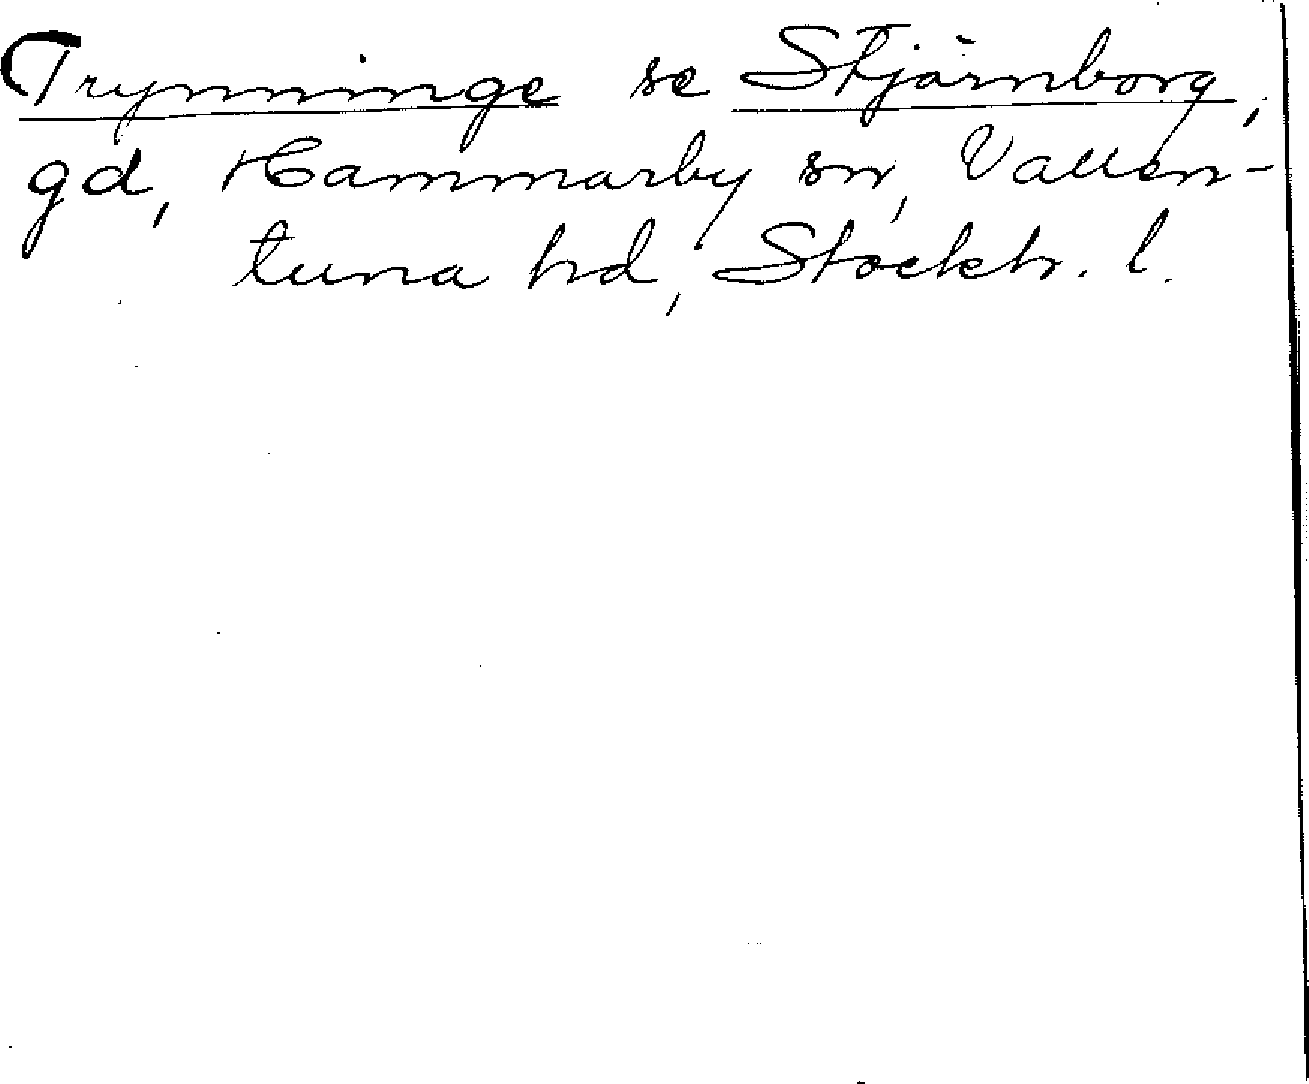 Trynninge se Stjärnborg,
gd, Hammarby sn, Vallen-
tuna hd, Stockh. l.